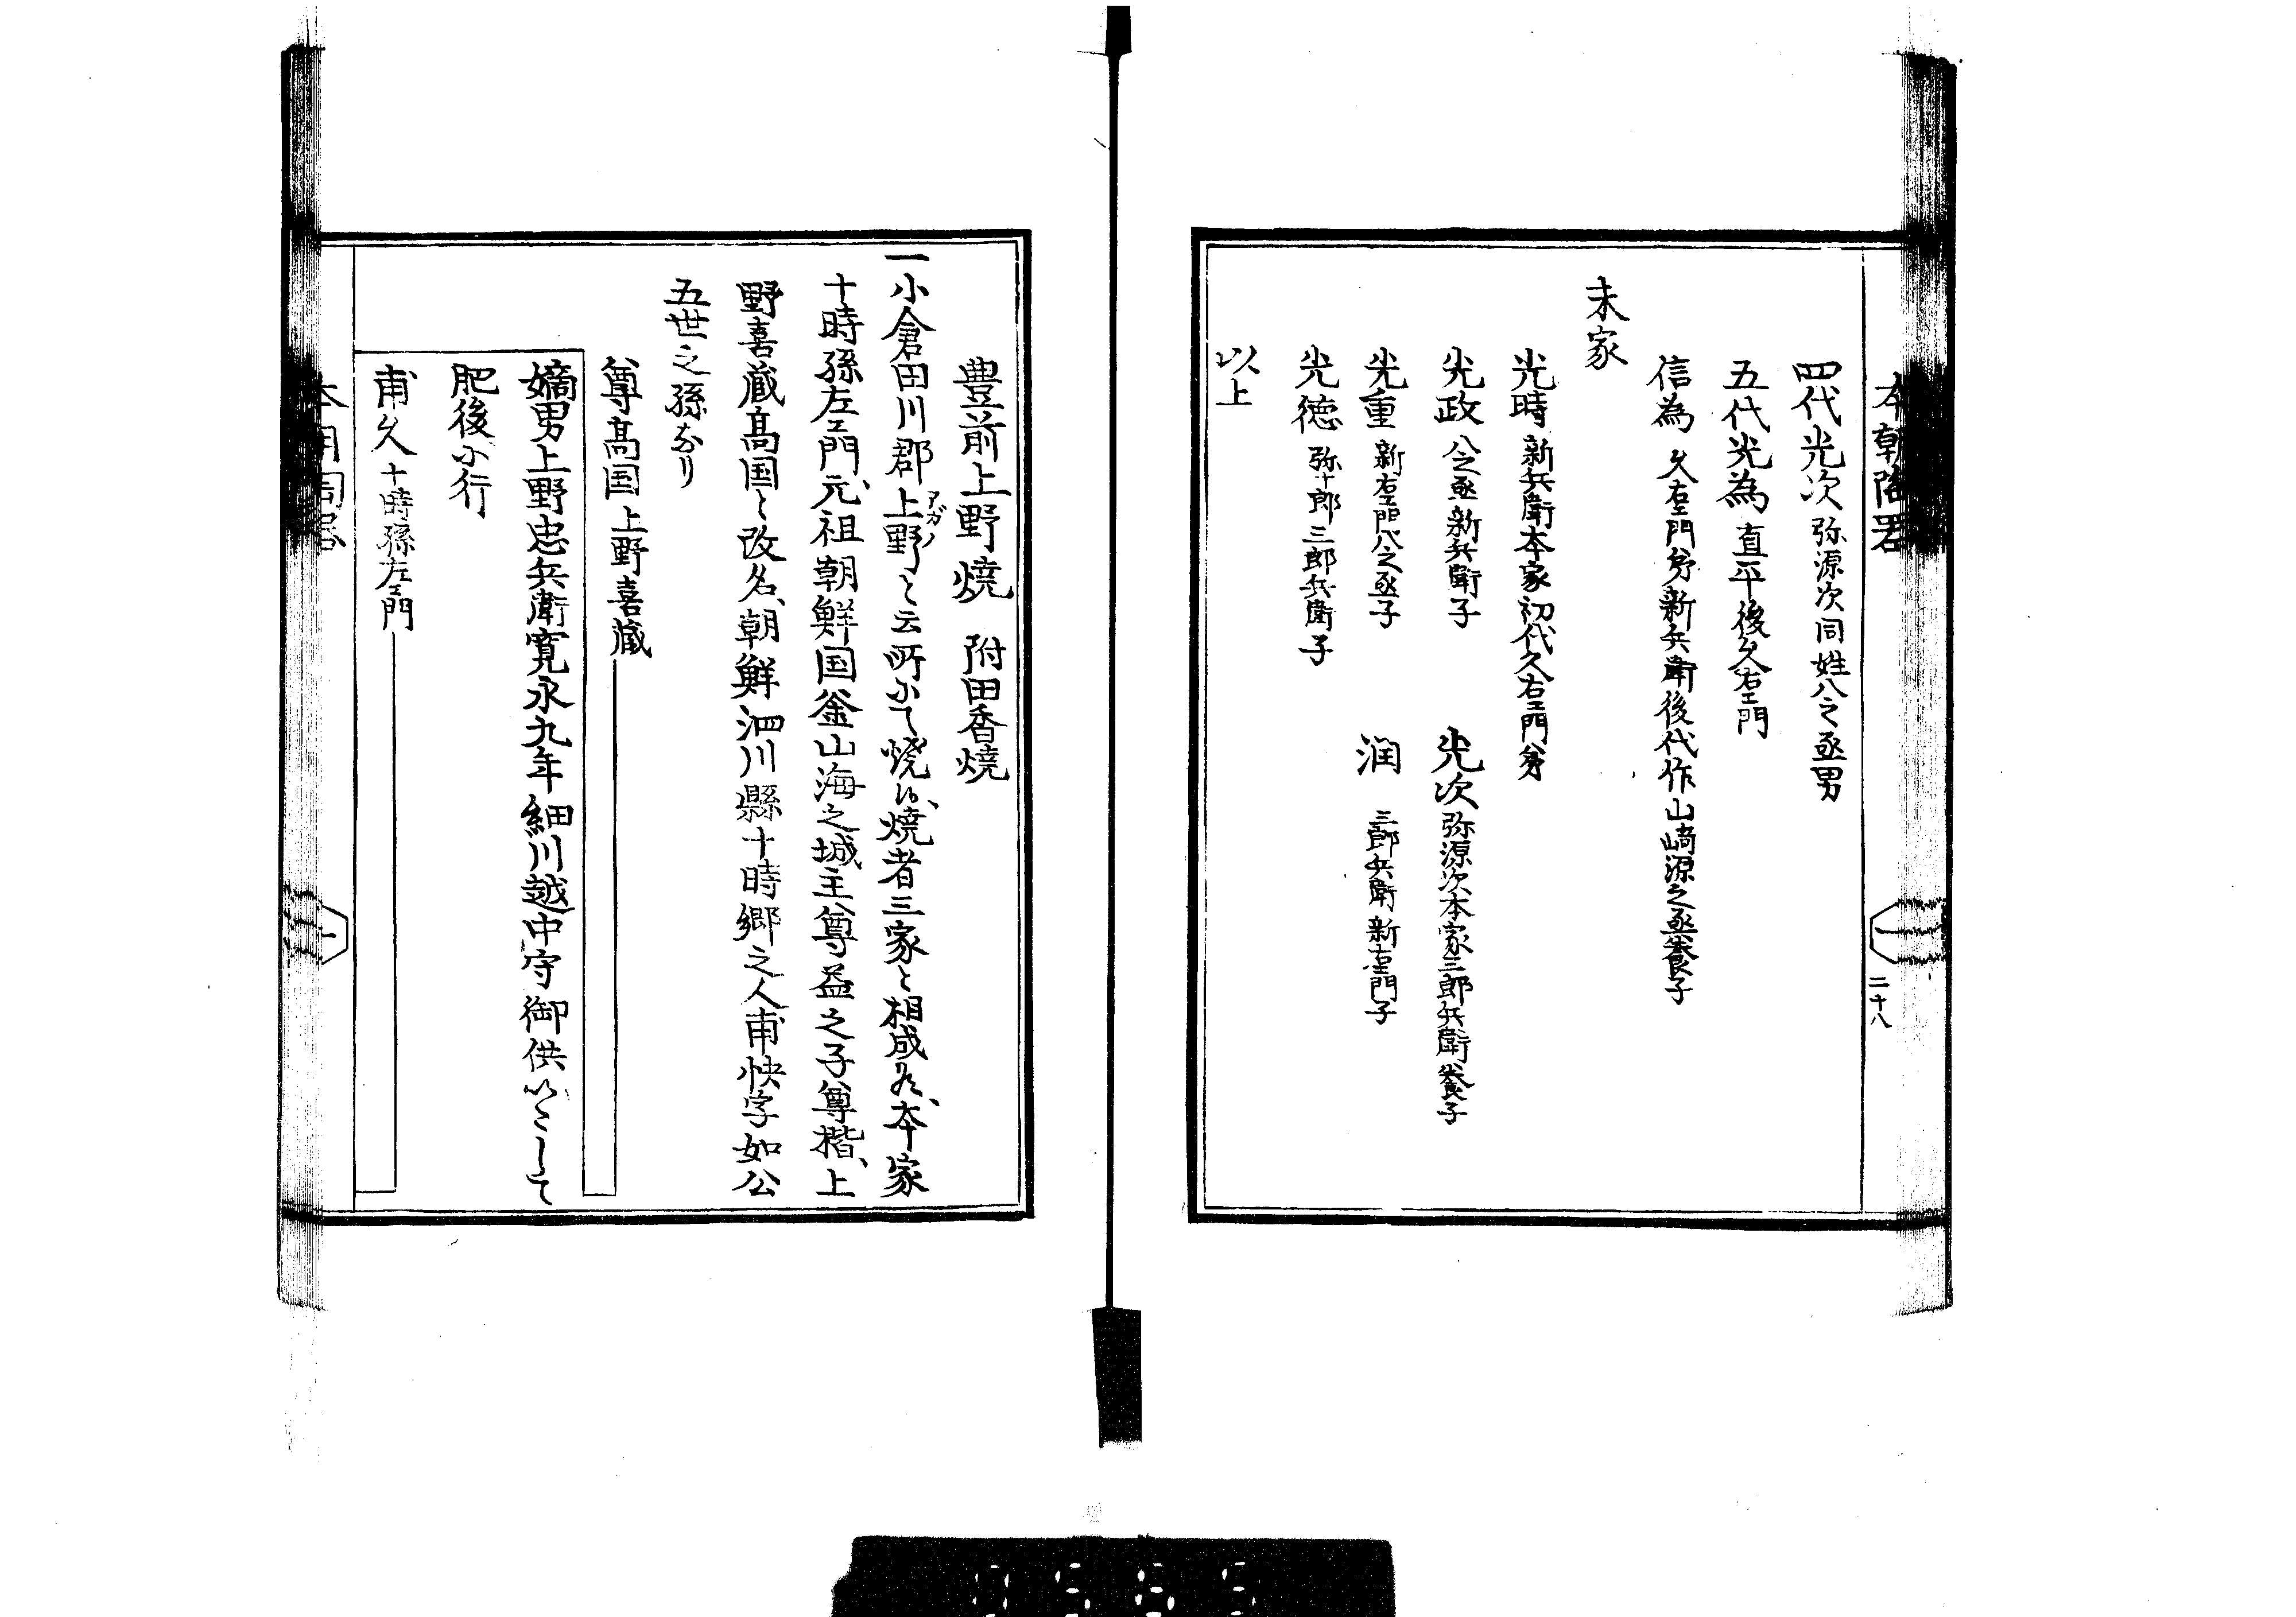 本朝陶器
二十八
四代光次 弥源次同姓八之丞男
五代光為 直平後久右エ門
信為 久右エ門弟新兵衛後代作山崎源之丞養子
末家
光時 新兵衛本家初代久右エ門弟
光政 八之丞新兵衛子 光次 弥源次本家三郎兵衛養子
光重 新右エ門八之丞子 潤 三郎兵衛新右エ門子
光徳 弥十郎三郎兵衛子
以上
豊前上野焼 附田香焼
一小倉田川郡上野アガノと云所にて焼候、焼者三家と相成居、本家
十時孫左エ門、元祖朝鮮国釜山海之城主尊益之子尊楷、上
野喜蔵高国と改名、朝鮮泗川縣十時郷之人甫快字如公
五世之孫なり
尊高国 上野喜蔵
嫡男上野忠兵衛寛永九年細川越中守御供いたして
肥後に行
甫久 十時孫左エ門